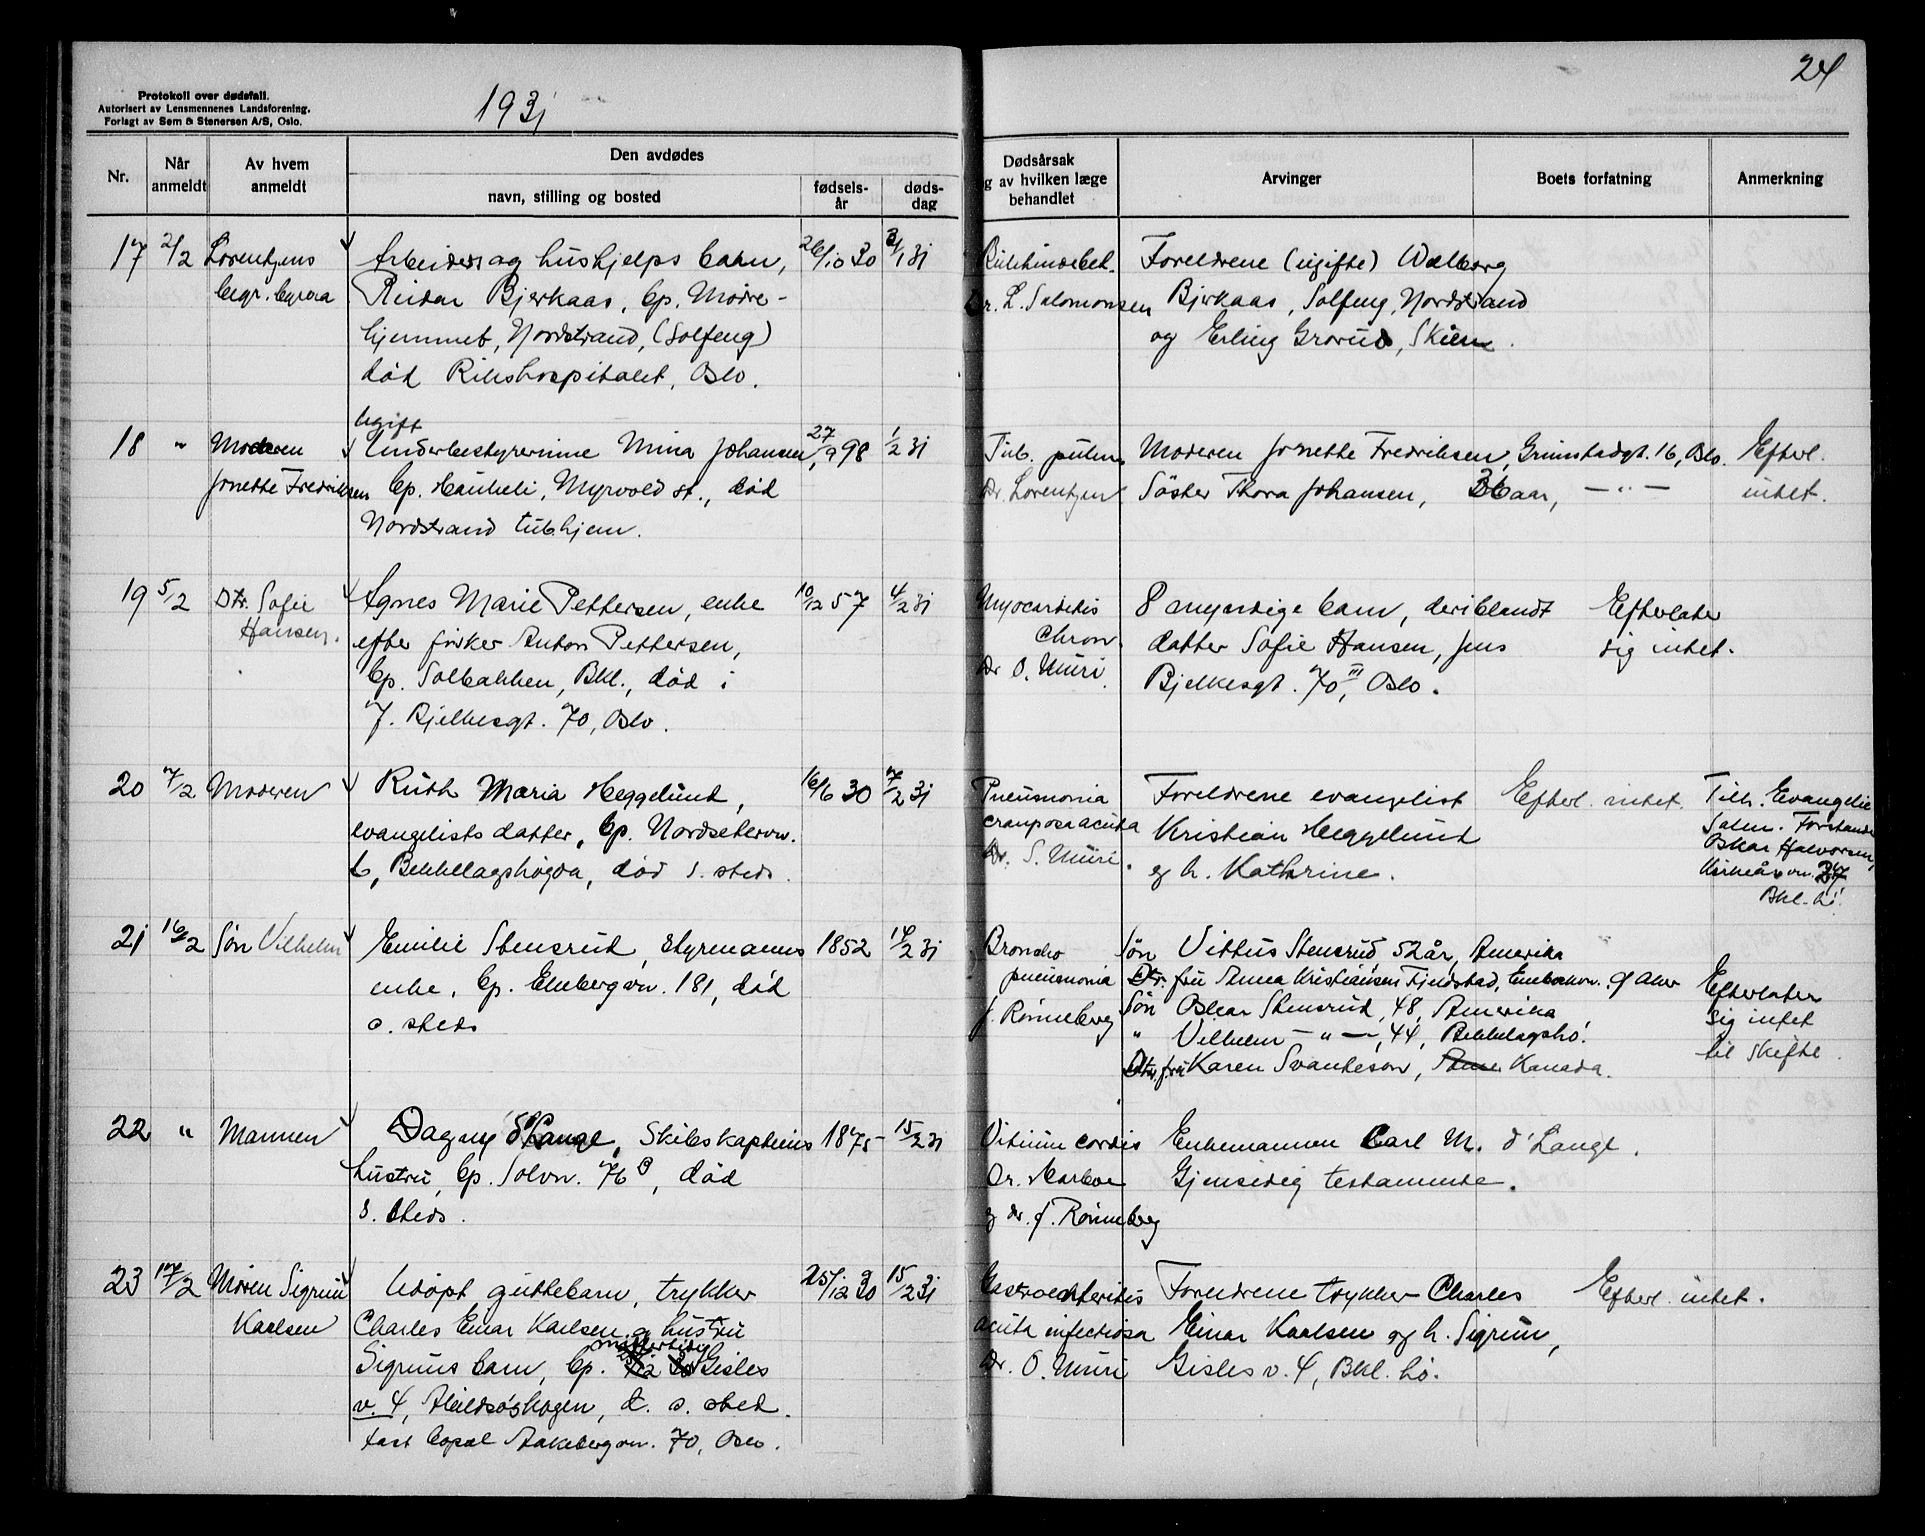 24
Protokoll over dødsfall.
Autorisert av Lensmennenes Landsforening.
Forlagt av Sem & Stenersen A/S, Oslo.
1931
Nr.
Når anmeldt
Av hvem anmeldt
Den avdødes
navn, stilling og bosted
fødsels-år
døds-dag
Dødsårsak
g av hvilken læge
behandlet
Arvinger
Boets forfatning
Anmerkning
17 2/2 Lorentzens
begr. byraa
Arbeider og hushjelps barn, 26/10 30 3/1 31
Reidar Bjerkaas, bp. Mødre-
hjemmet, Nordstrand, (Solfeng)
død Rikshospitalet, Oslo.
Dr. L. Salomonsen
Foreldrene (ugifte) Valborg
Bjerkaas, Solfeng, Nordstrand
og Erling Grorud, Skien.
18 " Moderen
Jonette Fredriksen
Ugift
Underbestyrerinne Mina Johansen, 27/9 98 1/2 31
bp. Haukeli, Myrvold st., død
Nordstrand tub.hjem.
Tub. pulm.
Dr. Lorentzen
Moderen Jonette Fredriksen, Grimstadgt. 16, Oslo.
Søster Thora Johansen, 36 aar, — " —
Efterl.
intet.
19 5/2 Dtr. Sofie
Hansen.
Agnes Marie Pettersen, enke 10/12 57 4/2 31
efter Anton Pettersen,
bp. Solbakken, Bkl., død i
J. Bjelkesgt. 70, Oslo.
Myocarditis
chron.
Dr O. Muri
8 myndige barn, deriblandt
datter Sofie Hansen, Jens
Bjelkesgt. 70 III, Oslo.
Efterlater
sig intet.
20 7/2 Moderen
Ruth Maria Heggelund, 16/6 30 7/2 31
evangelists datter, bp. Nordsetervn.
6, Bekkelagshøgda, død s. steds.
Pneumonia
crouposa acuta
Dr. S. Muri.
Foreldrene evangelist
Kristian Heggelund
og h. Kathrine.
Efterl. intet.
Tilh. Evangelie
Salen. Forstander
Oskar Halvorsen,
37
Bkl. hø.
21 16/2 Søn Vilhelm
Emilie Stensrud, styrmanns 1852 14/2 31
enke, bp. Ekebergvn. 181, død
s. steds
Broncho
pneumonia
J. Rønneberg
Søn Vittus Stensrud 52 år, Amerika
Dtr. fru Anna Kristiansen Fjeldstad, Ø. Aker
Søn Oskar Stensrud, 48, Amerika
" Vilhelm — " —, 44, Bekkelagshø.
Dtr. fru Karen Svanteson, Kanada.
Efterlater
sig intet
til skifte.
22 " Mannen
Dagny d'Lange, Skibskapteins 1875 15/2 31
hustru, bp. Solvn. 76 B, død
s. steds.
Vitium cordis
Dr. Harboe
og dr. J. Rønneberg
Enkemannen Carl M. d'Lange.
Gjensidig testamente.
23 17/2 Moren Sigrun
Karlsen
Udøpt guttebarn, trykker 25/12 30 15/2 31
Charles Einar Karlsen og hustru
Sigruns barn, bp. midlertidig Gisles
v. 4, d. s. sted.
fast bopæl Aakebergvn. 70, Oslo.
Gastroenteritis
acuta infectiosa
Dr. O. Muri
Foreldrene trykker Charles
Einar Karlsen og h. Sigrun,
Gisles v. 4, Bkl. hø.
Efterl. intet.